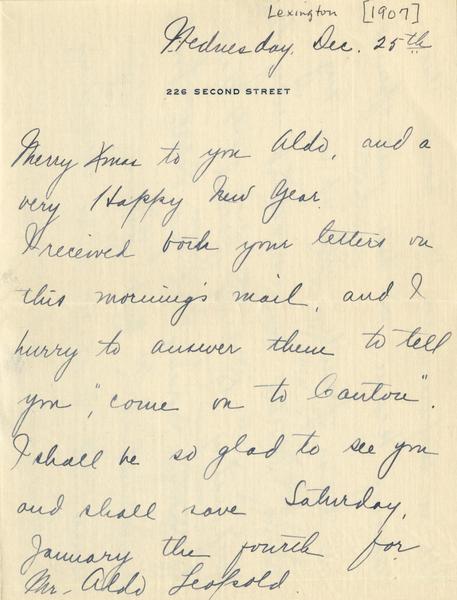 Lexington [1907]
Wednesday, Dec. 25th
226 SECOND STREET
Merry Xmas to you Aldo, and a
very Happy New Year.
I received both your letters on
this morning's mail, and I
hurry to answer them to tell
you "come on to Canton".
I shall be so glad to see you
and shall save Saturday,
January the fourth for
Mr. Aldo Leopold